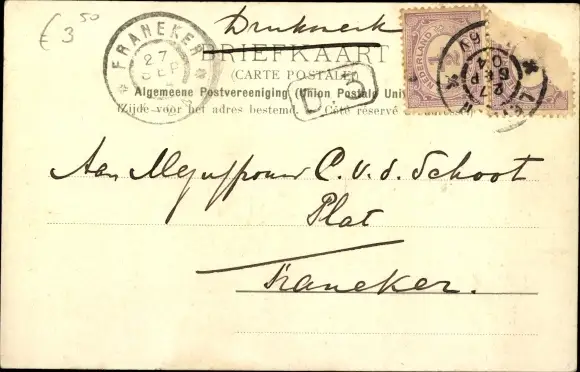 € 3 50
Drukwerk
BRIEFKAART
(CARTE POSTALE)
Algemeene Postvereeniging (Union Postale Univ
Zijde voor het adres bestemd. Côté réservé
FRANEKER
27
SEP
NEDERLAND
27
SEP
04
Aan Mejuffrouw C. v. d. Schoot
Plat
Franeker.